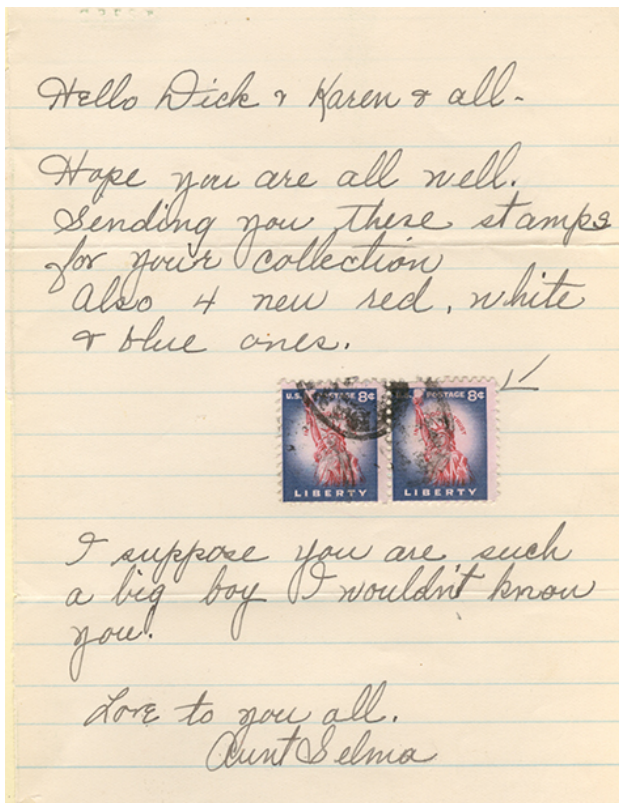 Hello Dick & Karen & all-
Hope you are all well.
Sending you these stamps
for your collection
Also 4 new red, white
& blue ones.
U.S. POSTAGE 8¢ U.S. POSTAGE 8¢
LIBERTY LIBERTY
I suppose you are such
a big boy I wouldn't know
you.
Love to you all.
Aunt Selma